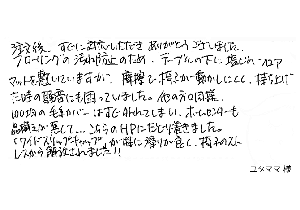 注文後、すぐに対応いただき ありがとうございました。
フローリングの汚れ防止のため、テーブルの下に塩ビのフロア
マットを敷いていますが、摩擦で椅子が動かしにくく、持ち上げ
た時の騒音にも困っていました。他の方同様、
100均の毛糸カバーはすぐ外れてしまい、ホームセンターも
品揃えが悪くて… こちらのHPにたどり着きました。
"ワイドスリップキャップ"が特に滑りが良く、椅子のスト
レスから解放されました!!
ユタママ 様